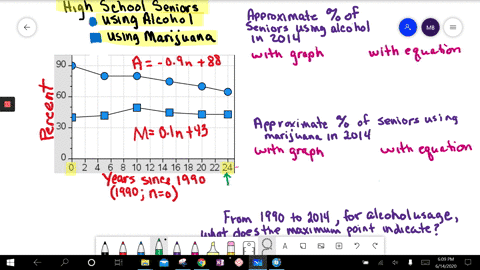 High School Seniors
using Alcohol
using Marijuana
A = -0.9n + 88
90
60
30
0
Percent
M = 0.1n + 43
0 2 4 6 8 10 12 14 16 18 20 22 24
Years since 1990
(1990, n=0)
Approximate % of
Seniors using alcohol
in 2014
with graph with equation
Approximate % of seniors using
marijuana in 2014
with graph with equation
From 1990 to 2014, for alcohol usage,
what does the maximum point indicate?
MB
6:03 PM
6/14/2020